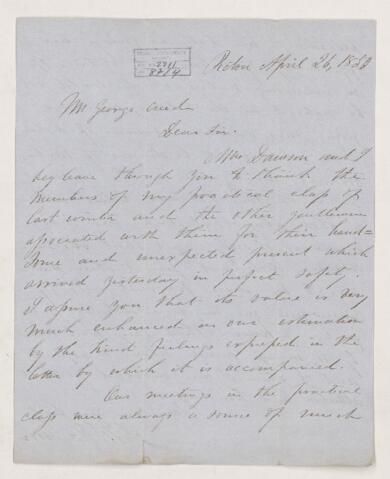 Pictou April 26, 1853
Mr George
Dear Sir.
Mrs Dawson and I
beg leave through you to thank the
members of my practical class of
last winter and the other gentlemen
associated with them for their hand=
some and unexpected present which
arrived yesterday in perfect safety.
I assure you that its value is very
much enhanced in our estimation
by the kind feelings expressed in the
letter by which it is accompanied.
Our meetings in the practical
class were always a source of much